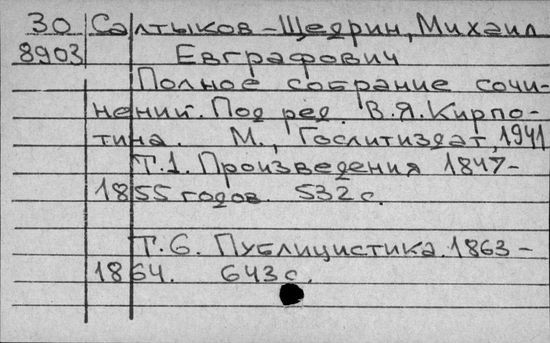 30 Салтыков-Щедрин, Михаил
8903 Евграфович
Полное собрание сочи-
нений. Под ред. В.Я.Кирпо-
тина. М., Гослитиздат, 1941
Т.1. Произведения 1847-
1855 годов. 532 с.
Т.6. Публицистика. 1863-
1864. 643 с.